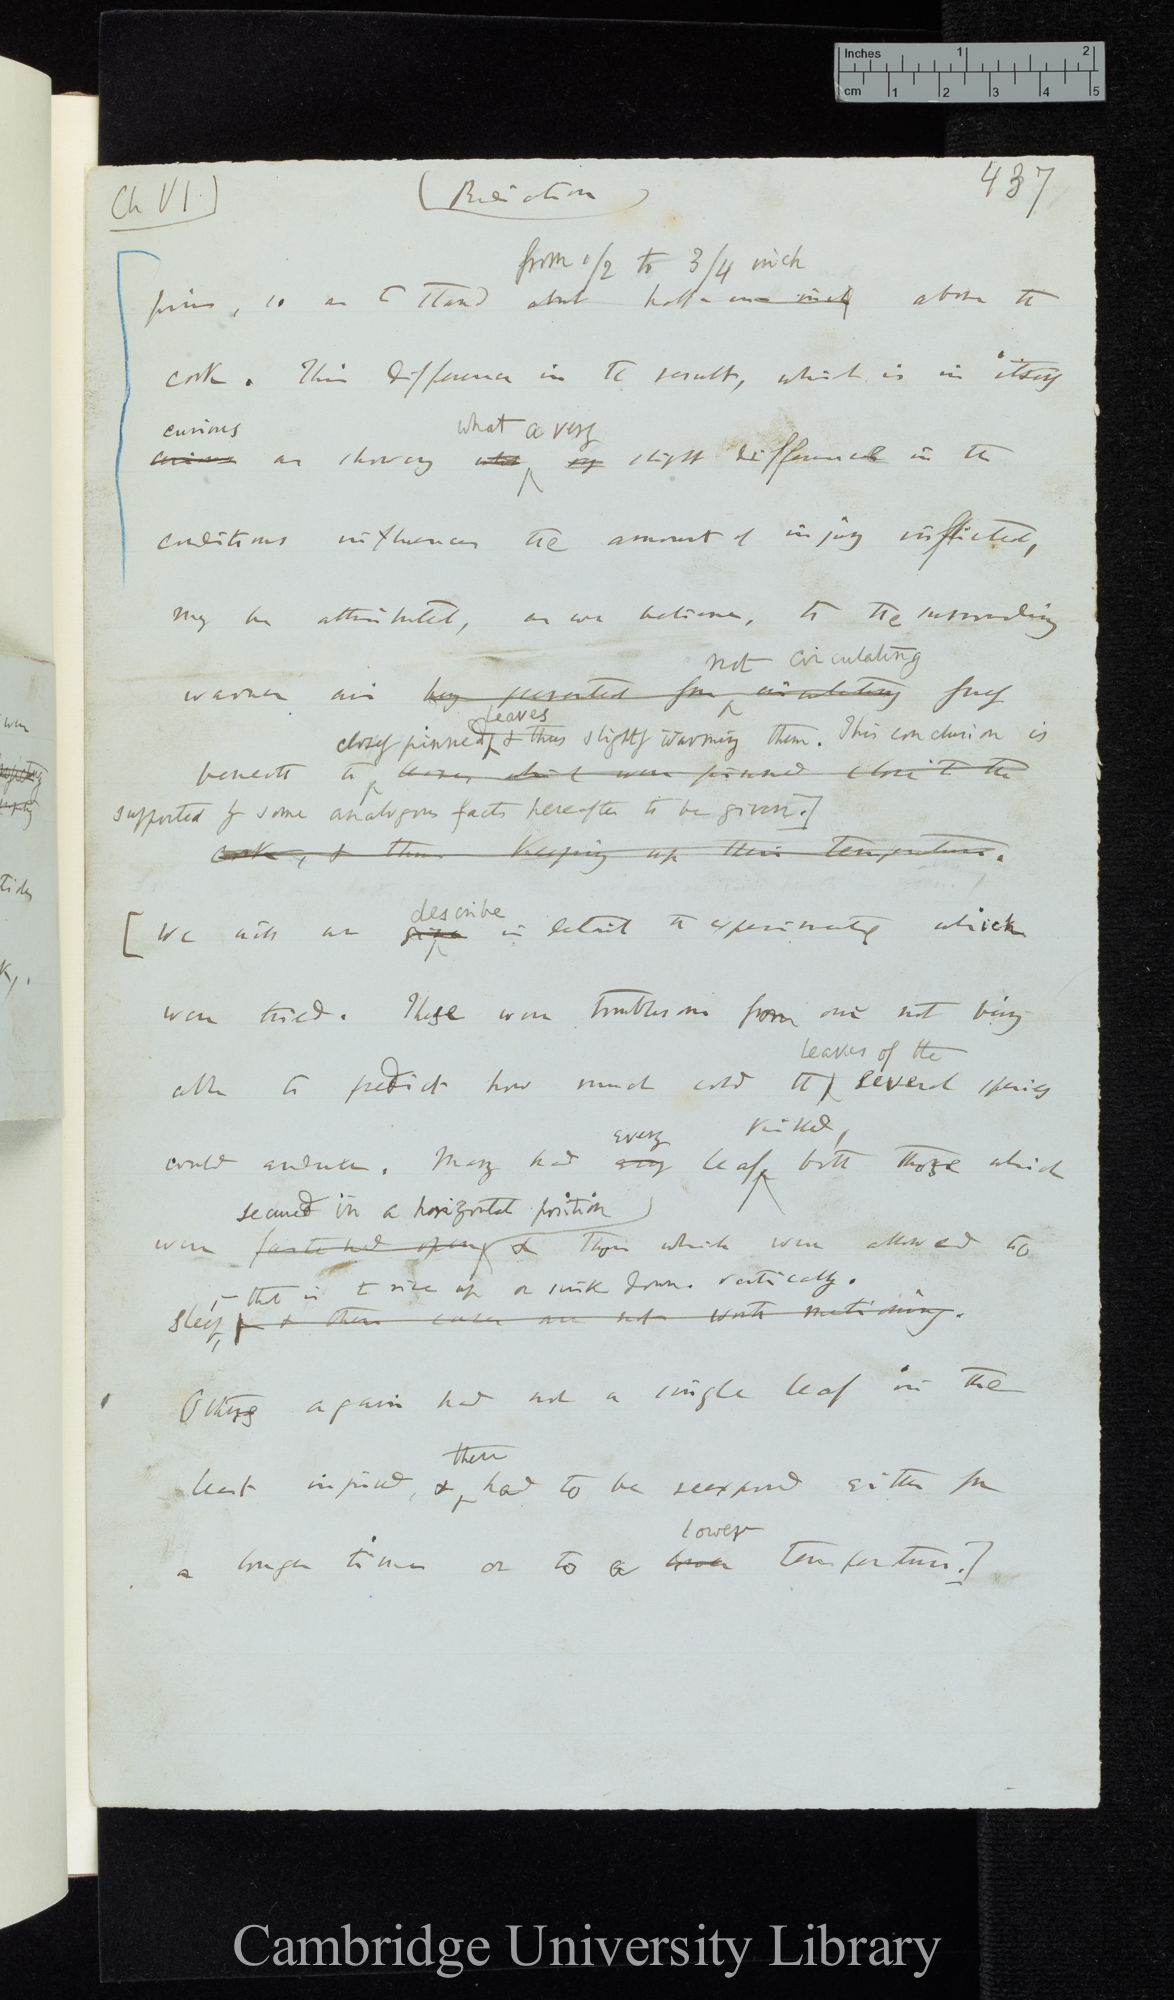 Inches 1 2
cm 1 2 3 4 5
Ch VI.]
(Radiation)
437
from 1/2 to 3/4 inch
pins, so as to stand about half an inch above the
cork. This difference in the result, which is in itself
curious what a very
curious as showing what slight difference in the
conditions influences the amount of injury inflicted,
may be attributed, as we believe, to the surrounding
not circulating
warmer air being prevented from circulating freely
leaves
closely pinned & thus slightly warming them. This conclusion is
beneath the leaves, which were pinned close to the
supported by some analogous facts hereafter to be given.]
cork, & thus keeping up their temperature.
describe
[We will now give in detail the experiments which
were tried. These were troublesome from our not being
leaves of the
able to predict how much cold the several species
every killed,
could endure. Many had every leaf both those which
secured in a horizontal position
were fastened open & those which were allowed to
– that is to rise up or sink down vertically.
sleep, & these cases are not worth mentioning.
Others again had not a single leaf in the
then
least injured, & had to be reexposed either for
lower
a longer time or to a lower temperature.]
Cambridge University Library